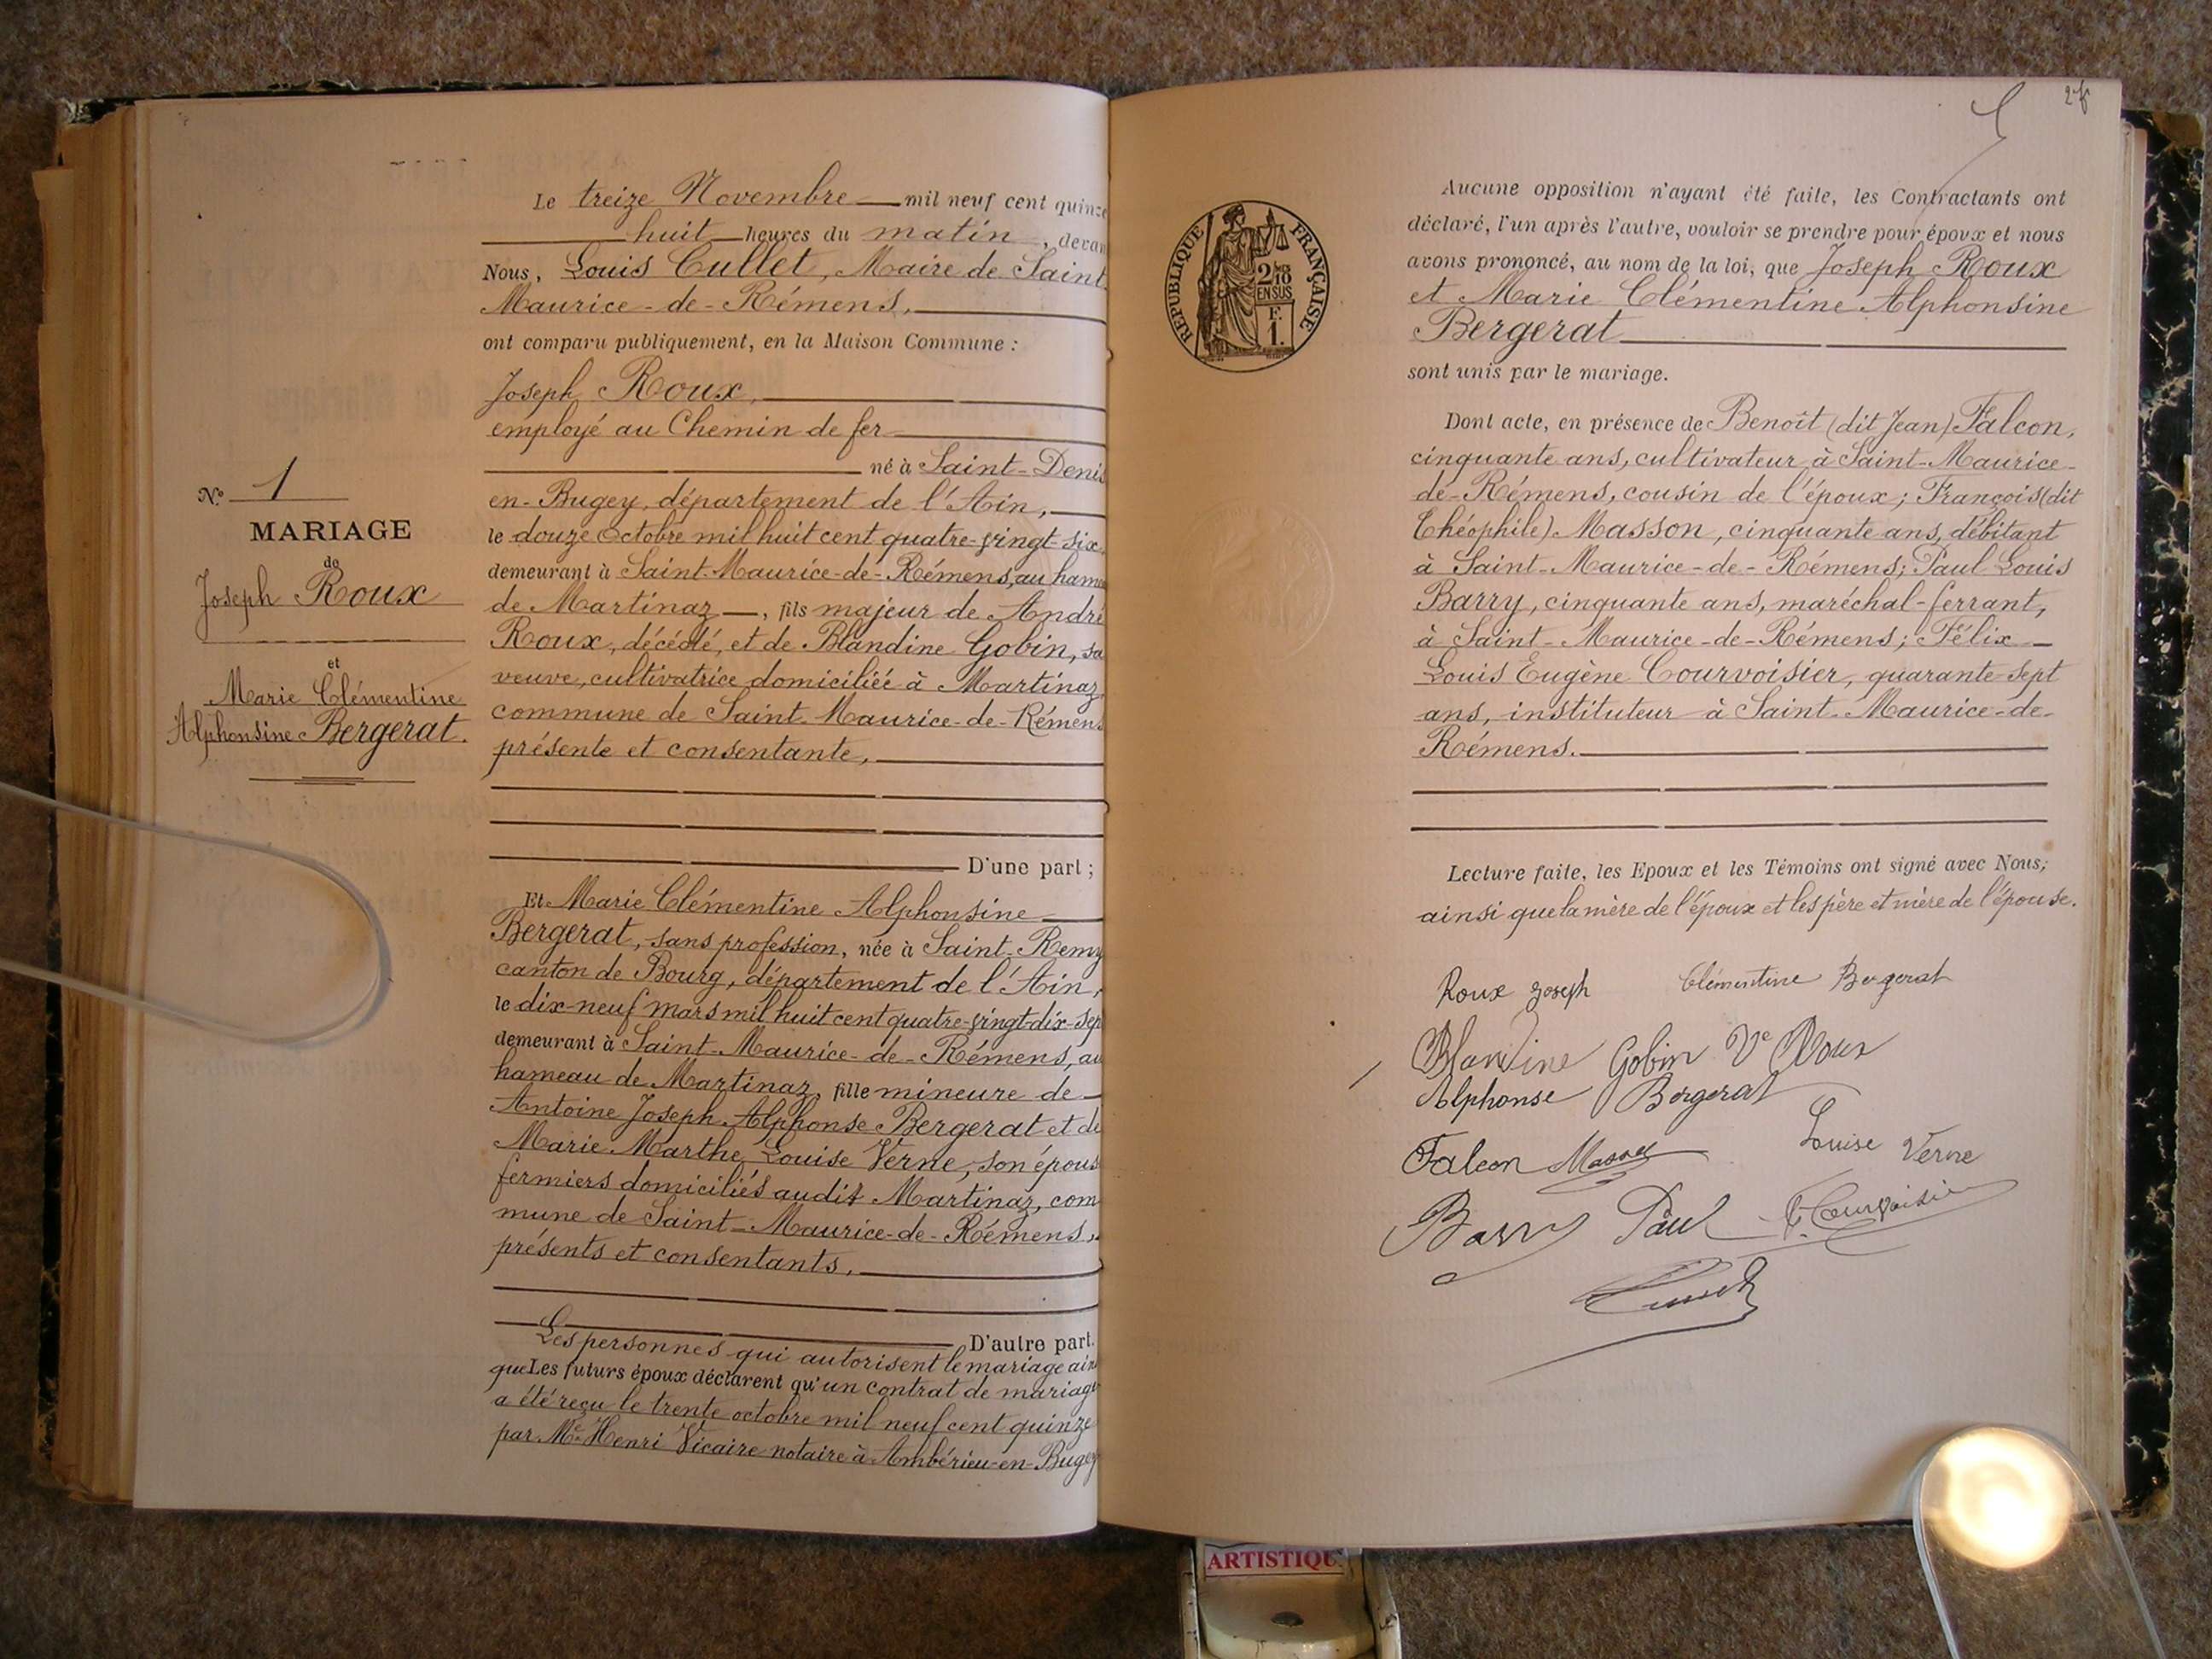 Le treize Novembre mil neuf cent quinze
huit heures du matin, devan
Nous, Louis Cullet, Maire de Saint
Maurice-de-Rémens,
ont comparu publiquement, en la Maison Commune :
Joseph Roux,
employé au Chemin de fer
né à Saint-Denis
en-Bugey, département de l'Ain,
le douze Octobre mil huit cent quatre-vingt-six
demeurant à Saint-Maurice-de-Rémens, au hame
de Martinaz, fils majeur de André
Roux, décédé, et de Blandine Gobin, sa
veuve, cultivatrice domiciliée à Martinaz
commune de Saint-Maurice-de-Rémens
présente et consentante,
D'une part ;
Et Marie Clémentine Alphonsine
Bergerat, sans profession, née à Saint-Remy
canton de Bourg, département de l'Ain,
le dix-neuf mars mil huit cent quatre-vingt-dix-sep
demeurant à Saint-Maurice-de-Rémens, au
hameau de Martinaz, fille mineure de
Antoine Joseph Alphonse Bergerat et de
Marie Marthe Louise Verne, son épous
fermiers domiciliés audit Martinaz, com
mune de Saint-Maurice-de-Rémens,
présents et consentants,
D'autre part.
Les personnes qui autorisent le mariage ain
que Les futurs époux déclarent qu'un contrat de mariage
a été reçu le trente octobre mil neuf cent quinze
par Me Henri Vicaire notaire à Ambérieu-en-Bugey
No 1
MARIAGE
de
Joseph Roux
et
Marie Clémentine
Alphonsine Bergerat.
RÉPUBLIQUE FRANÇAISE
2/10
EN SUS
F.
1.
Aucune opposition n'ayant été faite, les Contractants ont
déclaré, l'un après l'autre, vouloir se prendre pour époux et nous
avons prononcé, au nom de la loi, que Joseph Roux
et Marie Clémentine Alphonsine
Bergerat
sont unis par le mariage.
Dont acte, en présence de Benoît (dit Jean) Falcon,
cinquante ans, cultivateur à Saint-Maurice-
de-Rémens, cousin de l'époux; François (dit
Théophile) Masson, cinquante ans, débitant
à Saint-Maurice-de-Rémens; Paul Louis
Barry, cinquante ans, maréchal-ferrant,
à Saint-Maurice-de-Rémens; Félix
Louis Eugène Courvoisier, quarante-sept
ans, instituteur à Saint-Maurice-de-
Rémens.
Lecture faite, les Epoux et les Témoins ont signé avec Nous,
ainsi que la mère de l'époux et les père et mère de l'épouse.
Roux Joseph Clémentine Bergerat
Blandine Gobin Ve Roux
Alphonse Bergerat
Louise Verne
Falcon Masson
Barry Paul F. Courvoisier
ARTISTIQU